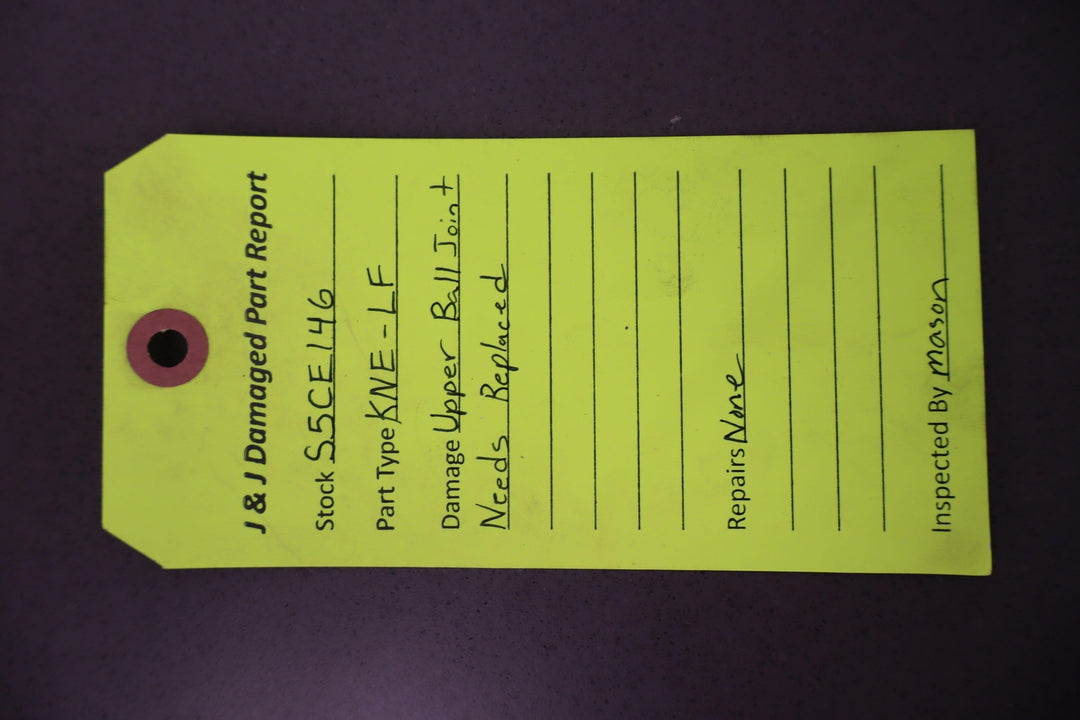 J & J Damaged Part Report
Stock S5CE146
Part Type KNE-LF
Damage Upper Ball Joint
Needs Replaced
Repairs None
Inspected By mason